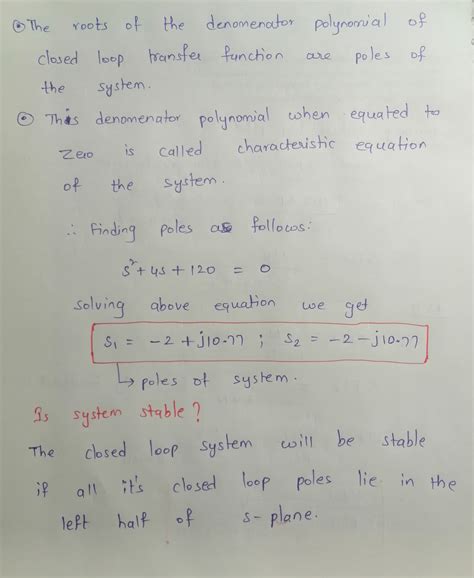 ⊙ The roots of the denomenator polynomial of
closed loop transfer function are poles of
the system.
⊙ This denomenator polynomial when equated to
zero is called characteristic equation
of the system.
∴ finding poles as follows:
s² + 4s + 120 = 0
solving above equation we get
s₁ = -2 + j10.77 ; s₂ = -2 - j10.77
↳ poles of system.
Is system stable?
The closed loop system will be stable
if all it's closed loop poles lie in the
left half of s-plane.